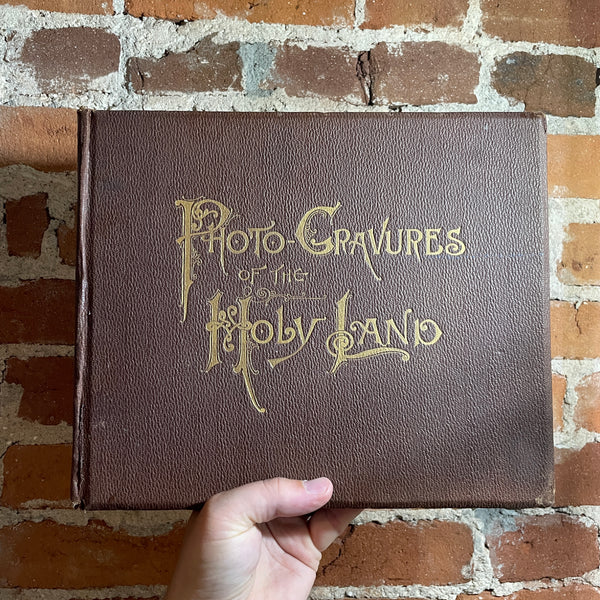 Photo-Gravures
of the
Holy Land